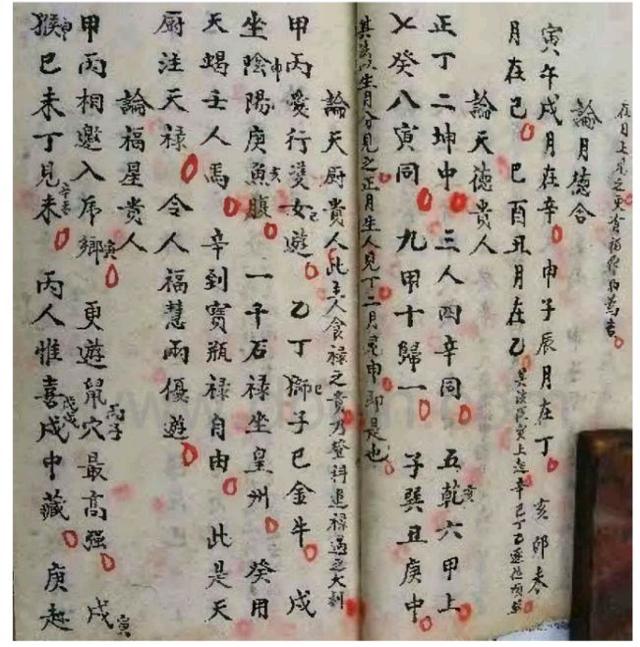 在月上見之更有福祭祀萬吉
論月德合
寅午戌月在辛 申子辰月在丁 亥卯未
月在己 巳酉丑月在乙
論天德貴人
正丁二坤中 三人四辛同 五乾亥六甲上
七癸八寅同 九甲十歸一 子巽丑庚中
其法以生月分見之正月生人見丁二月見申即是也
論天厨貴人此主人食祿之貴乃登科進祿遇之大利
甲丙愛行雙女遊 乙丁獅子巳金牛 戌
坐陰陽申庚魚腹亥 一千石祿坐皇州 癸用
天蝎壬人馬 辛到寶瓶祿自由 此是天
厨注天祿 令人福慧兩優遊
論福星貴人
甲丙相邀入虎鄉寅 更遊鼠穴丙子最高强 戌寅
猴申巳未丁見未辛未 丙人惟喜戌中藏 庚趁